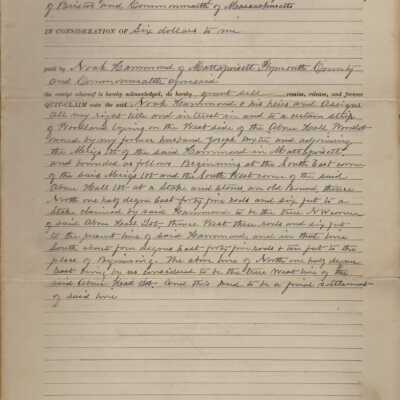 of Bristol and Commonwealth of Massachusetts
IN CONSIDERATION OF Six dollars to me
paid by Noah Hammond of Mattapoisett Plymouth County
and Commonwealth aforesaid
the receipt whereof is hereby acknowledged, do hereby grant sell remise, release, and forever
QUITCLAIM unto the said Noah Hammond & his heirs and Assigns
all my right title and interest in and to a certain strip
of Woodland lying on the West side of the Abner Hall Woodlot
owned by my former husband Joseph and adjoining
the Meigs lot of the said Hammond in Mattapoisett
and bounded as follows Beginning at the South East corner
of the said Meigs lot and the South West corner of the said
Abner Hall lot at a Stake and stones an old Bound, thence
North one half degree East forty five rods and six feet to a
Stake claimed by said Hammond to be the true N W corner
of said Abner Hall Lot thence West three rods and six feet
to the present line of said Hammond and in that line
South about four degrees East forty five rods & ten feet to the
place of Beginning. The above line of North one half degree
East being by us considered to be the true West line of the
said Abner Hall Lot. And this Deed to be a final settlement
of said line